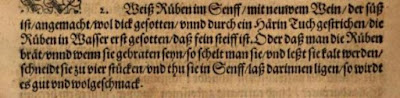 2. Weiß Rüben im Senff/ mit neuwem Wein/ der süß
ist/ angemacht/ wol dick gesotten/ vnnd durch ein Härin Tuch gestrichen/ die
Rüben in Wasser erst gesotten/ daß sein steiff ist. Oder daß man die Rüben
brät/ vnnd wenn sie gebraten seyn/ so schelt man sie/ vnd leßt sie kalt werden/
schneidt sie zu vier stücken/ vnd thu sie in Senff/ laß darinnen ligen/ so wirdt
es gut vnd wolgeschmack.